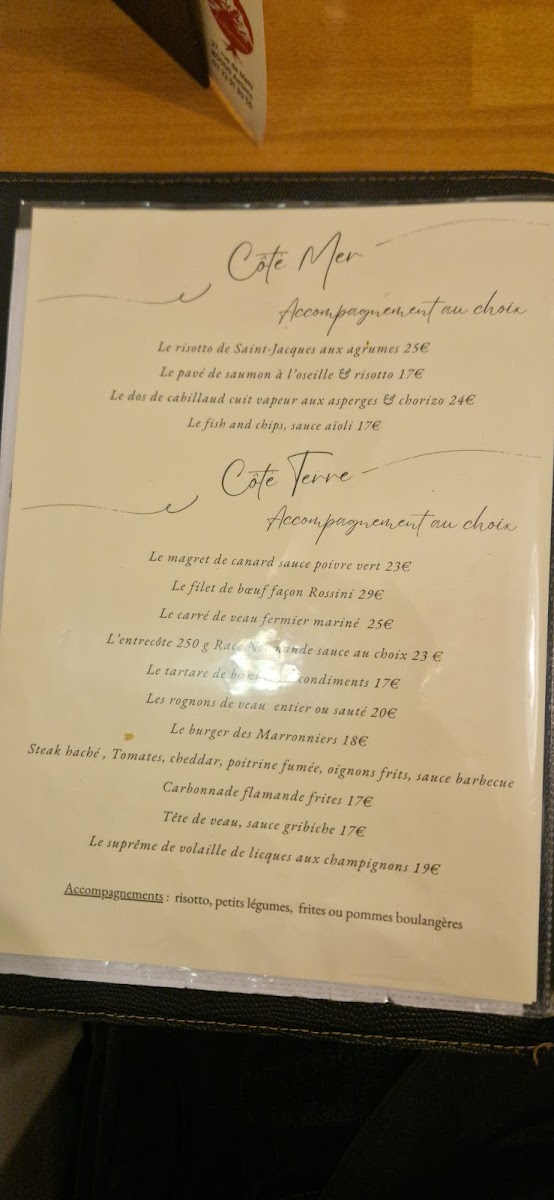 Côté Mer
Accompagnement au choix
Le risotto de Saint-Jacques aux agrumes 25€
Le pavé de saumon à l'oseille & risotto 17€
Le dos de cabillaud cuit vapeur aux asperges & chorizo 24€
Le fish and chips, sauce aïoli 17€
Côté Terre
Accompagnement au choix
Le magret de canard sauce poivre vert 23€
Le filet de bœuf façon Rossini 29€
Le carré de veau fermier mariné 25€
L'entrecôte 250 g Race Normande sauce au choix 23 €
Le tartare de condiments 17€
Les rognons de veau entier ou sauté 20€
Le burger des Marronniers 18€
Steak haché , Tomates, cheddar, poitrine fumée, oignons frits, sauce barbecue
Carbonnade flamande frites 17€
Tête de veau, sauce gribiche 17€
Le suprême de volaille de licques aux champignons 19€
Accompagnements : risotto, petits légumes, frites ou pommes boulangères